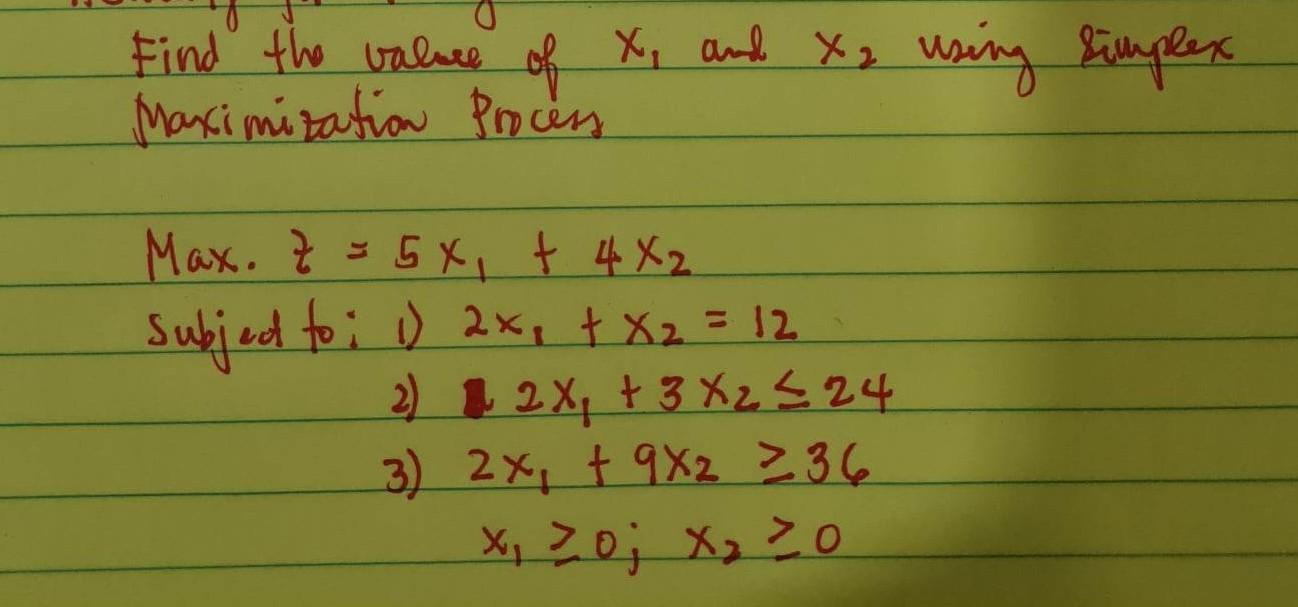 Find the value of x₁ and x₂ using Simplex
Maximization Process
Max. Z = 5x₁ + 4x₂
Subject to: 1) 2x₁ + x₂ = 12
2) 2x₁ + 3x₂ ≤ 24
3) 2x₁ + 9x₂ ≥ 36
x₁ ≥ 0; x₂ ≥ 0